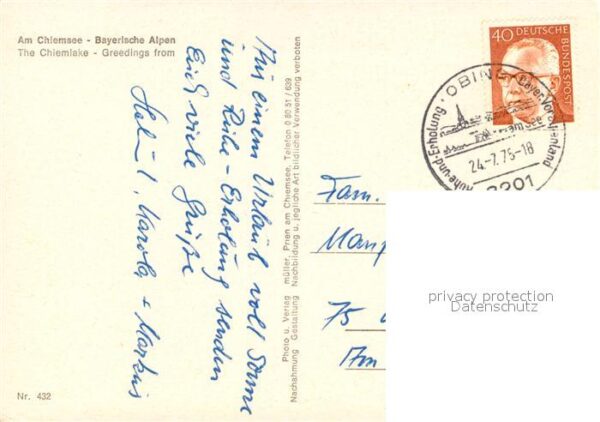 Am Chiemsee - Bayerische Alpen
The Chiemlake - Greedings from
Mit einem Urlaub voll Sonne
und Ruhe - Erholung senden
Euch viele Grüße
Karola + Markus
Nr. 432
Photo u. Verlag müller, Prien am Chiemsee, Telefon 0 80 51 / 639
Nachahmung Gestaltung Nachbildung u. jegliche Art bildlicher Verwendung verboten
40 DEUTSCHE
BUNDESPOST
OBING
Ruhe-und-Erholung
24.-7.75-18
8201
Fam.
75
Am
privacy protection
Datenschutz